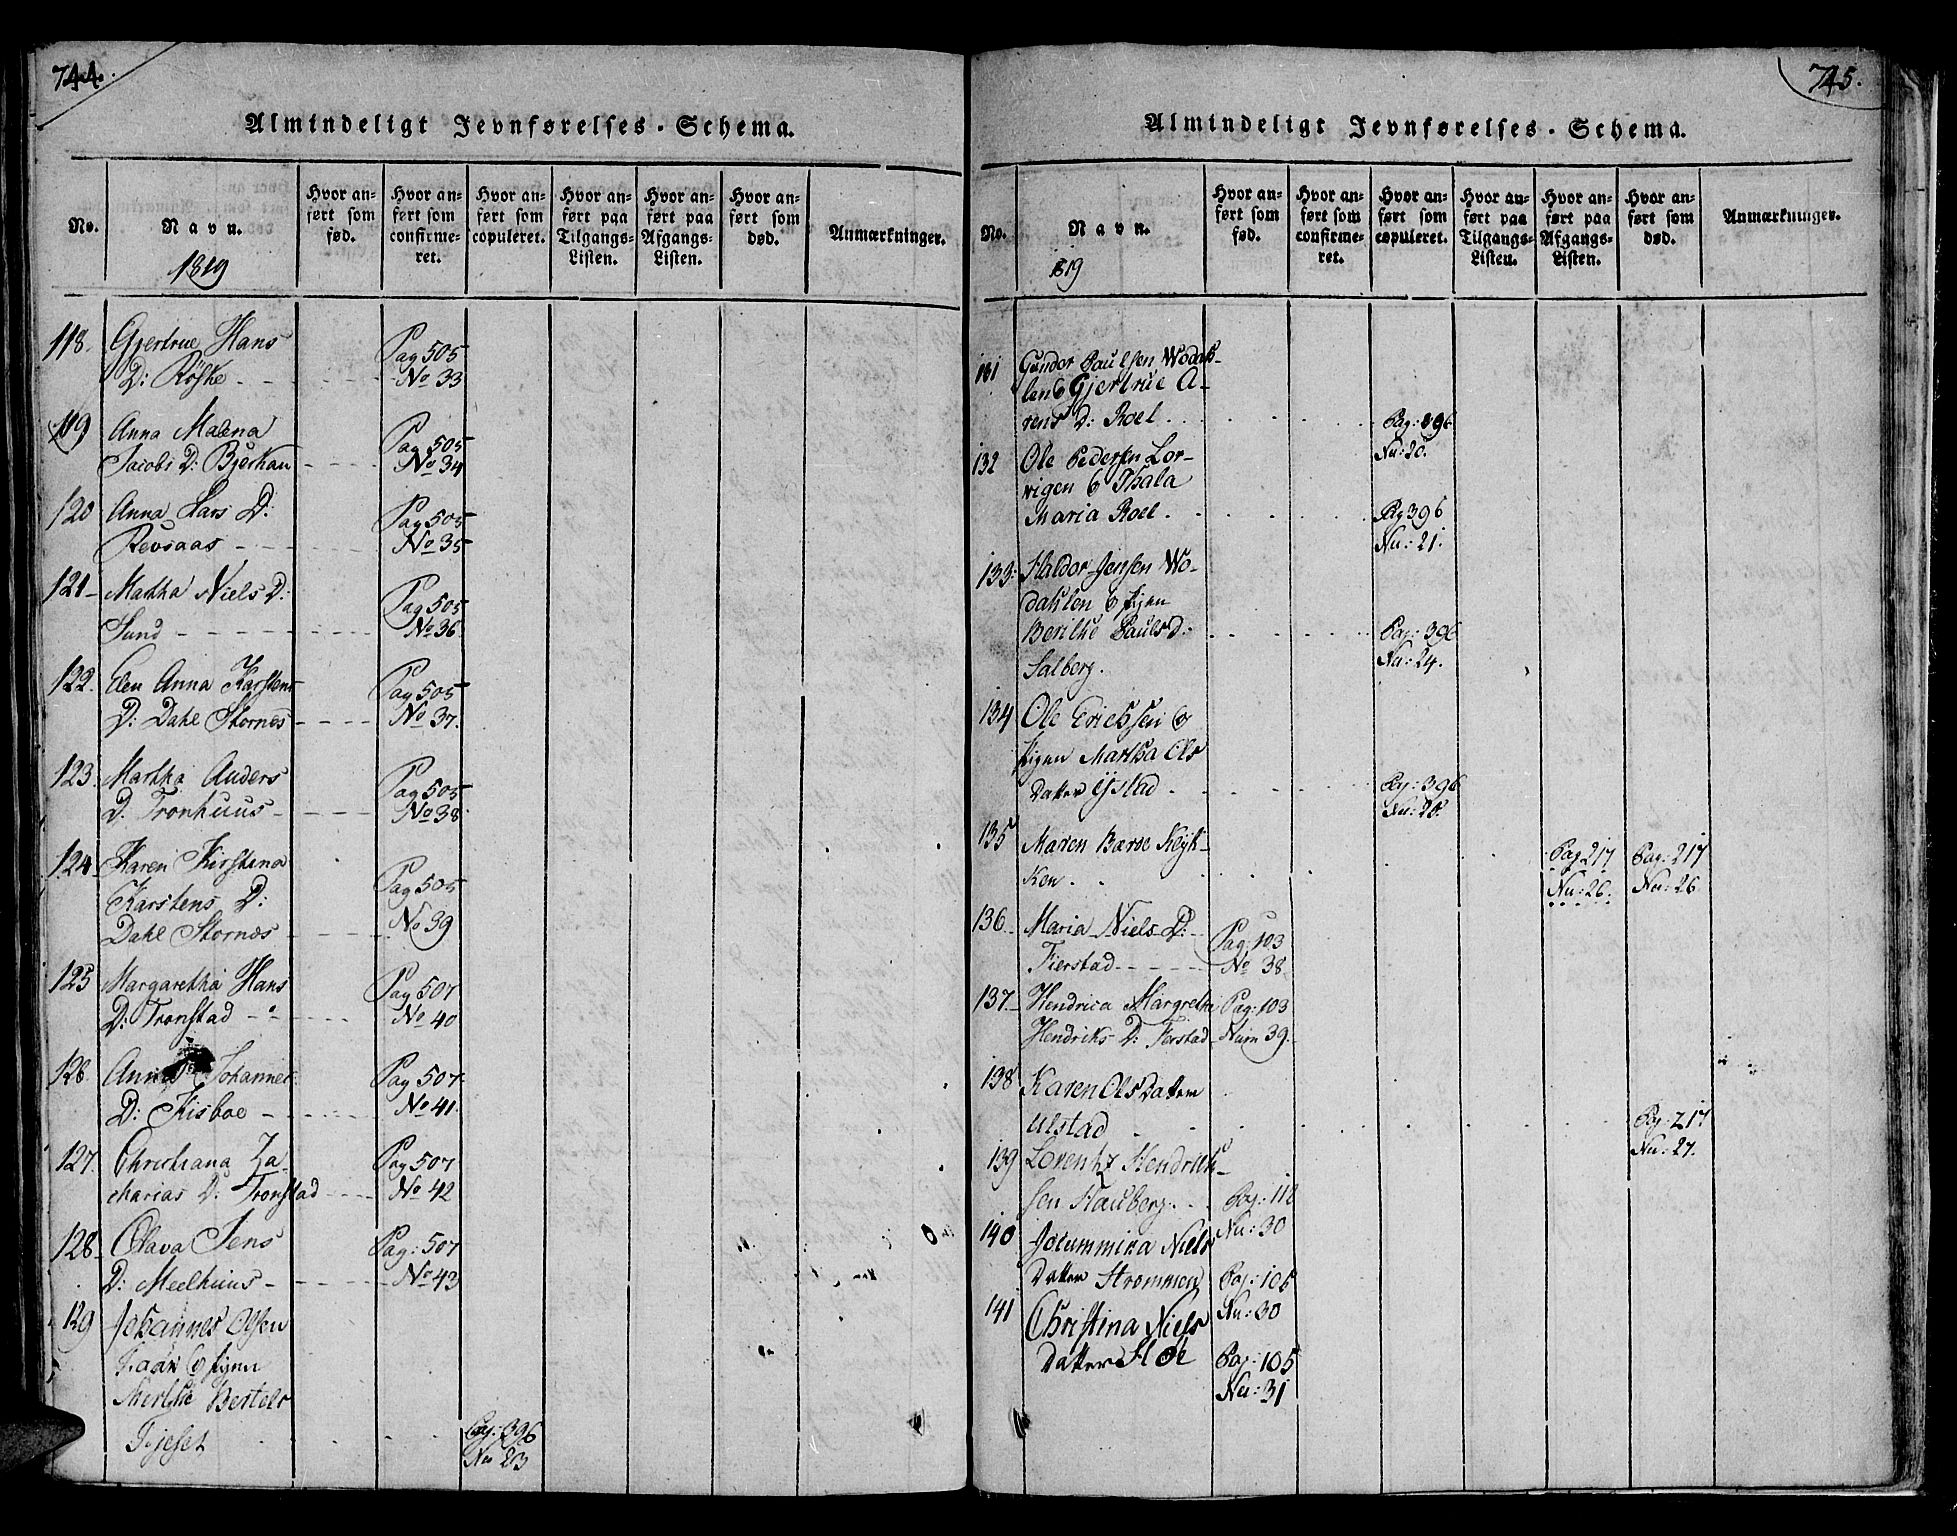 744.
Almindeligt Jevnførelses-Schema.
No.
Navn.
1819
Hvor anført som fød.
Hvor anført som confirmeret.
Hvor anført som copuleret.
Hvor anført paa Tilgangs-Listen.
Hvor anført paa Afgangs-Listen.
Hvor anført som død.
Anmærkninger.
118. Gjertrue Hans Pag 505
D: Røske No 33
119 Anna Malena Pag 505
Jacobs D: Bjerkan No 34
120 Anna Lars D: Pag 505
Revsaas No 35
121 Martha Niels D: Pag 505
Sund No 36
122. Elen Anna Karstens Pag 505
D: Dahl Stornes No 37.
123. Martha Anders Pag 505
D. Tronhuus No 38
124 Karen Kirstina Pag 505
Karstens D: No 39
Dahl Stornes
125 Margaretha Hans Pag 507
D: Tronstad No 40
126. Anna Johannes Pag 507.
D: No 41
127. Christiana Za- Pag 507
charias D: Tronstad No 42
128 Olava Jens Pag: 507
D: Meelhuus No 43
129 Johannes Olsen
& Pigen
Bertels
Pag: 396
No 23
745.
Almindeligt Jevnførelses-Schema.
No.
Navn.
1819
Hvor anført som fød.
Hvor anført som confirmeret.
Hvor anført som copuleret.
Hvor anført paa Tilgangs-Listen.
Hvor anført paa Afgangs-Listen.
Hvor anført som død.
Anmærkninger.
131 Gundor Paulsen Wodah-
len & Gjertrue A-
rens D: Roel Pag: 396
Nu: 20.
132 Ole Pedersen Lor-
vigen & Thala
Maria Roel Pag 396
Nu: 21.
133: Haldor Jensen Wo-
dahlen & Pigen
Berithe Pauls D: Pag: 396
Salberg. Nu: 24.
134 Ole Erichsen &
Pigen Martha Ols
Datter Ystad Pag: 396
Nu: 25.
135 Maren Pag 217 Pag: 217
Nu: 26. Nu: 26
136 Maria Niels D: Pag: 103
Fierstad No 38
137 Hendrica Margrethe Pag: 103
Hendriks D: Fierstad Num 39.
138 Karen Ols Datter
Ulstad Pag: 217
Nu: 27.
139 Lorentz Hendrik-
sen Hauberg Pag: 112
Nu: 30
140 Jocummina Niels
Datter Strømmen Pag: 105
Nu: 30
141 Christina Niels
Datter Pag: 105
Nu: 31